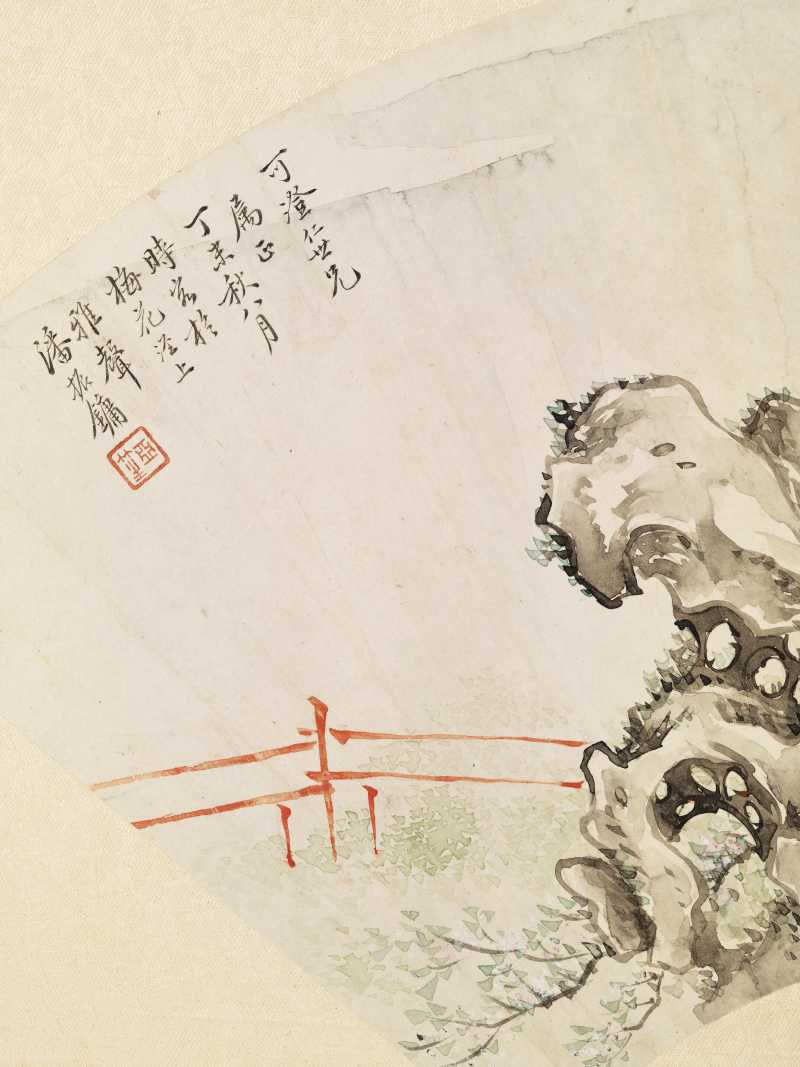 可澄仁世兄
属正
丁未秋八月
時客於
梅花溪上
雅聲
潘振鏞
亞笙